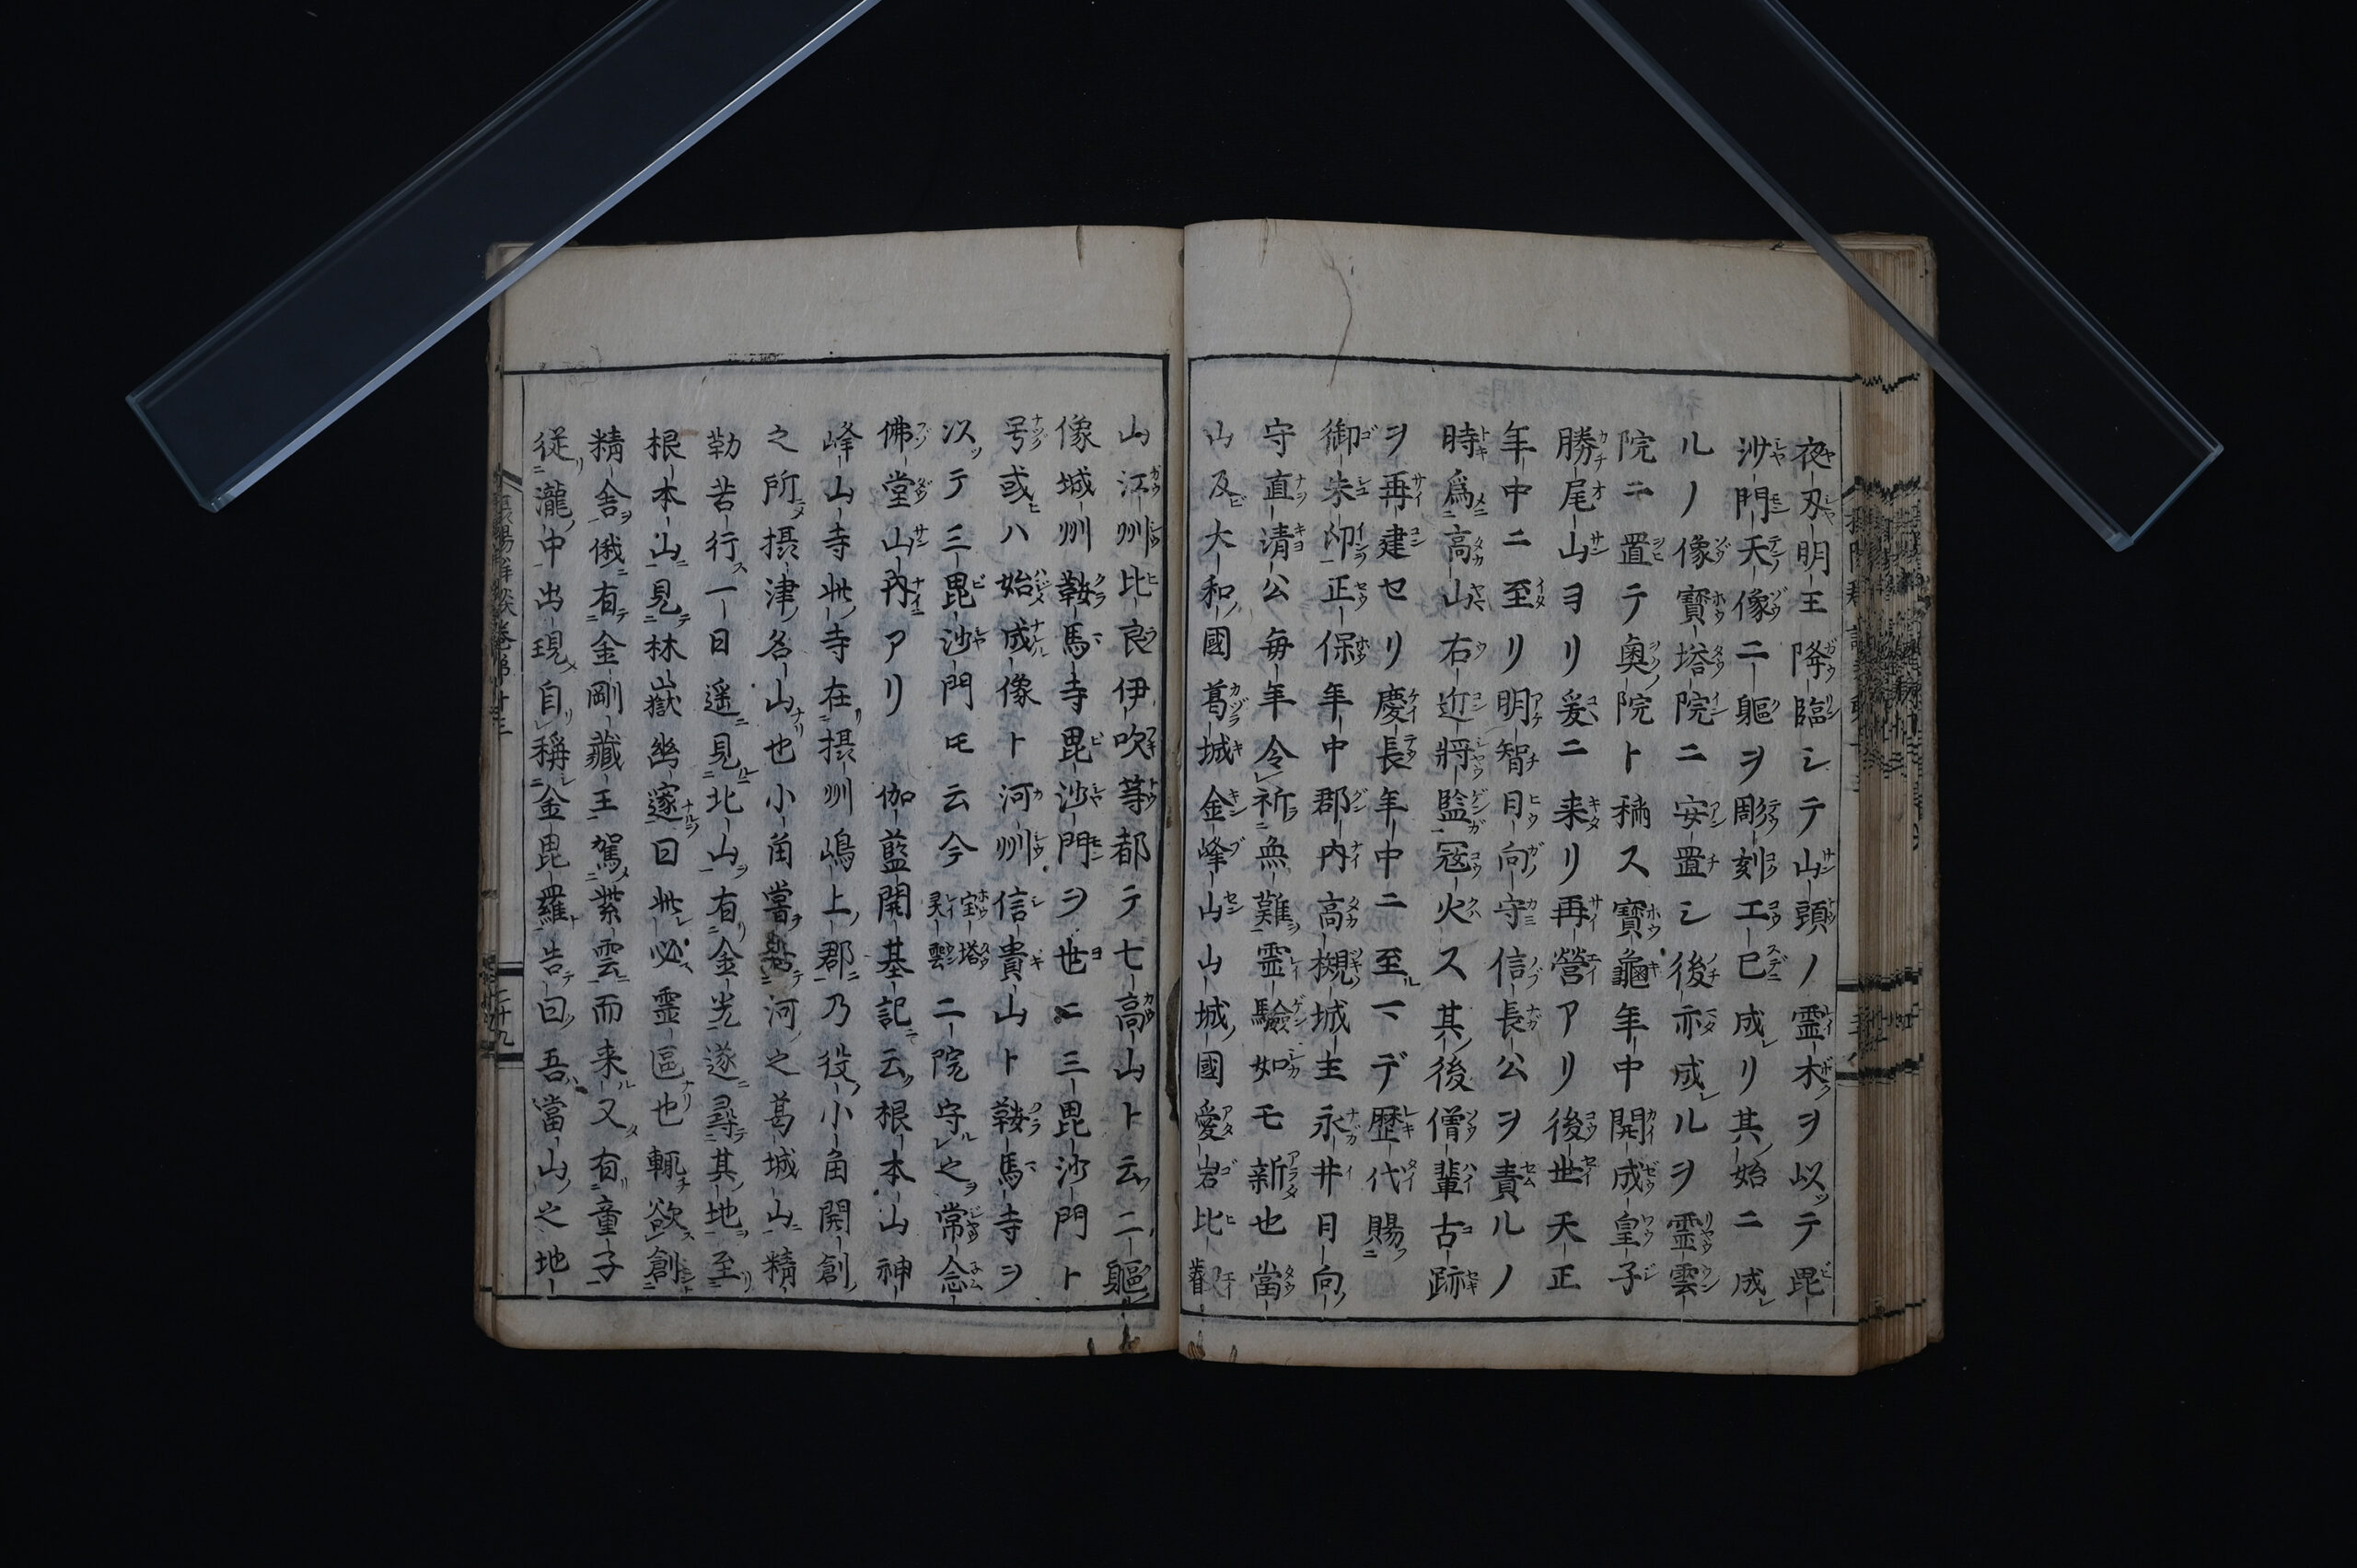 夜刄明王降臨シテ山頭ノ霊木ヲ以テ毘
沙門天像二軀ヲ彫刻工已成リ其始ニ成
ルノ像寳塔院ニ安置シ後亦成ルヲ霊雲
院ニ置テ奥院ト稱ス寳龜年中開成皇子
勝尾山ヨリ爰ニ来リ再營アリ後世天正
年中ニ至リ明智日向守信長公ヲ責ルノ
時爲高山右近將監冦火ス其後僧輩古跡
ヲ再建セリ慶長年中ニ至マデ歴代賜
御朱印正保年中郡内高槻城主永井日向
守直清公毎年令祈無難霊驗如モ新也當
山及大和國葛城金峰山山城國愛宕比叡
山江州比良伊吹等都テ七高山ト云二軀
像城州鞍馬寺毘沙門ヲ世ニ三毘沙門ト
号或ハ始成像ト河州信貴山ト鞍馬寺ヲ
以テ三毘沙門㔫云今宝塔霊雲二院守之常念
佛堂山内アリ 伽藍開基記云根本山神
峰山寺此寺在摂州嶋上郡乃役小角開創
之所摂津名山也小角嘗河之葛城山精
勤苦行一日遥見北山有金光遂尋其地至
根本山見林嶽幽邃曰此必霊區也輙欲創
精舎俄有金剛藏王駕紫雲而来又有童子
従瀧中出現自稱金毘羅告曰吾當山之地
卷第十三
二十九